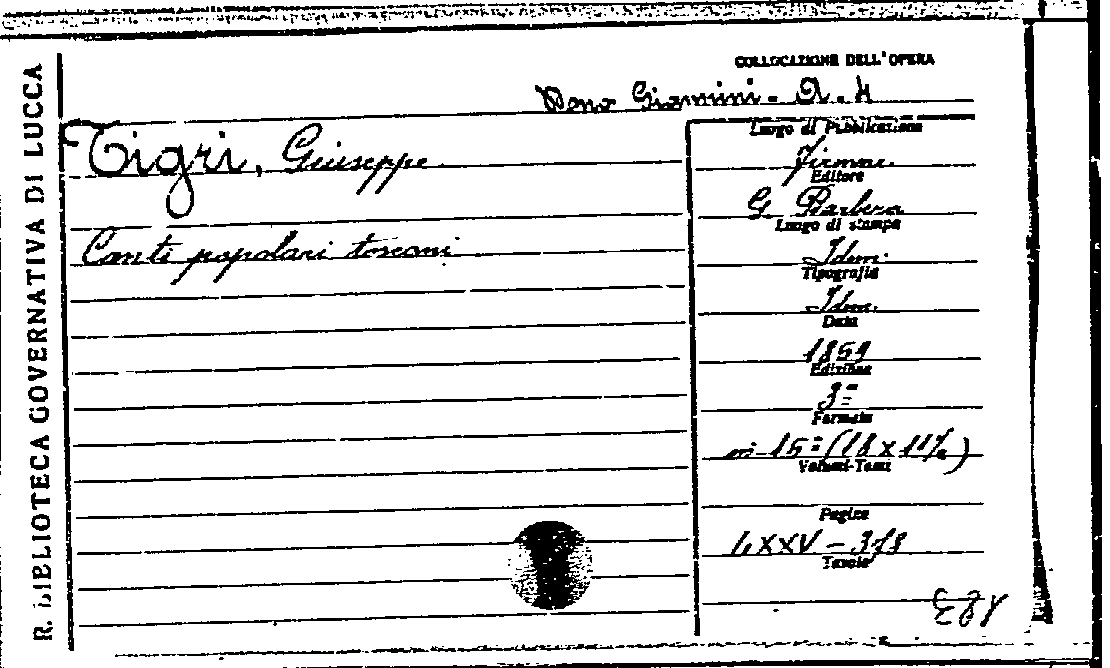 R. BIBLIOTECA GOVERNATIVA DI LUCCA
COLLOCAZIONE DELL'OPERA
Dono Giannini - A. 4
Tigri, Giuseppe
Canti popolari toscani
Luogo di Pubblicazione
Firenze
Editore
G Barbera
Luogo di stampa
Idem.
Tipografia
Idem.
Data
Edizione
3=
Formato
in 16=
Volumi-Tomi
Pagine
LXXV - 318
Tavole